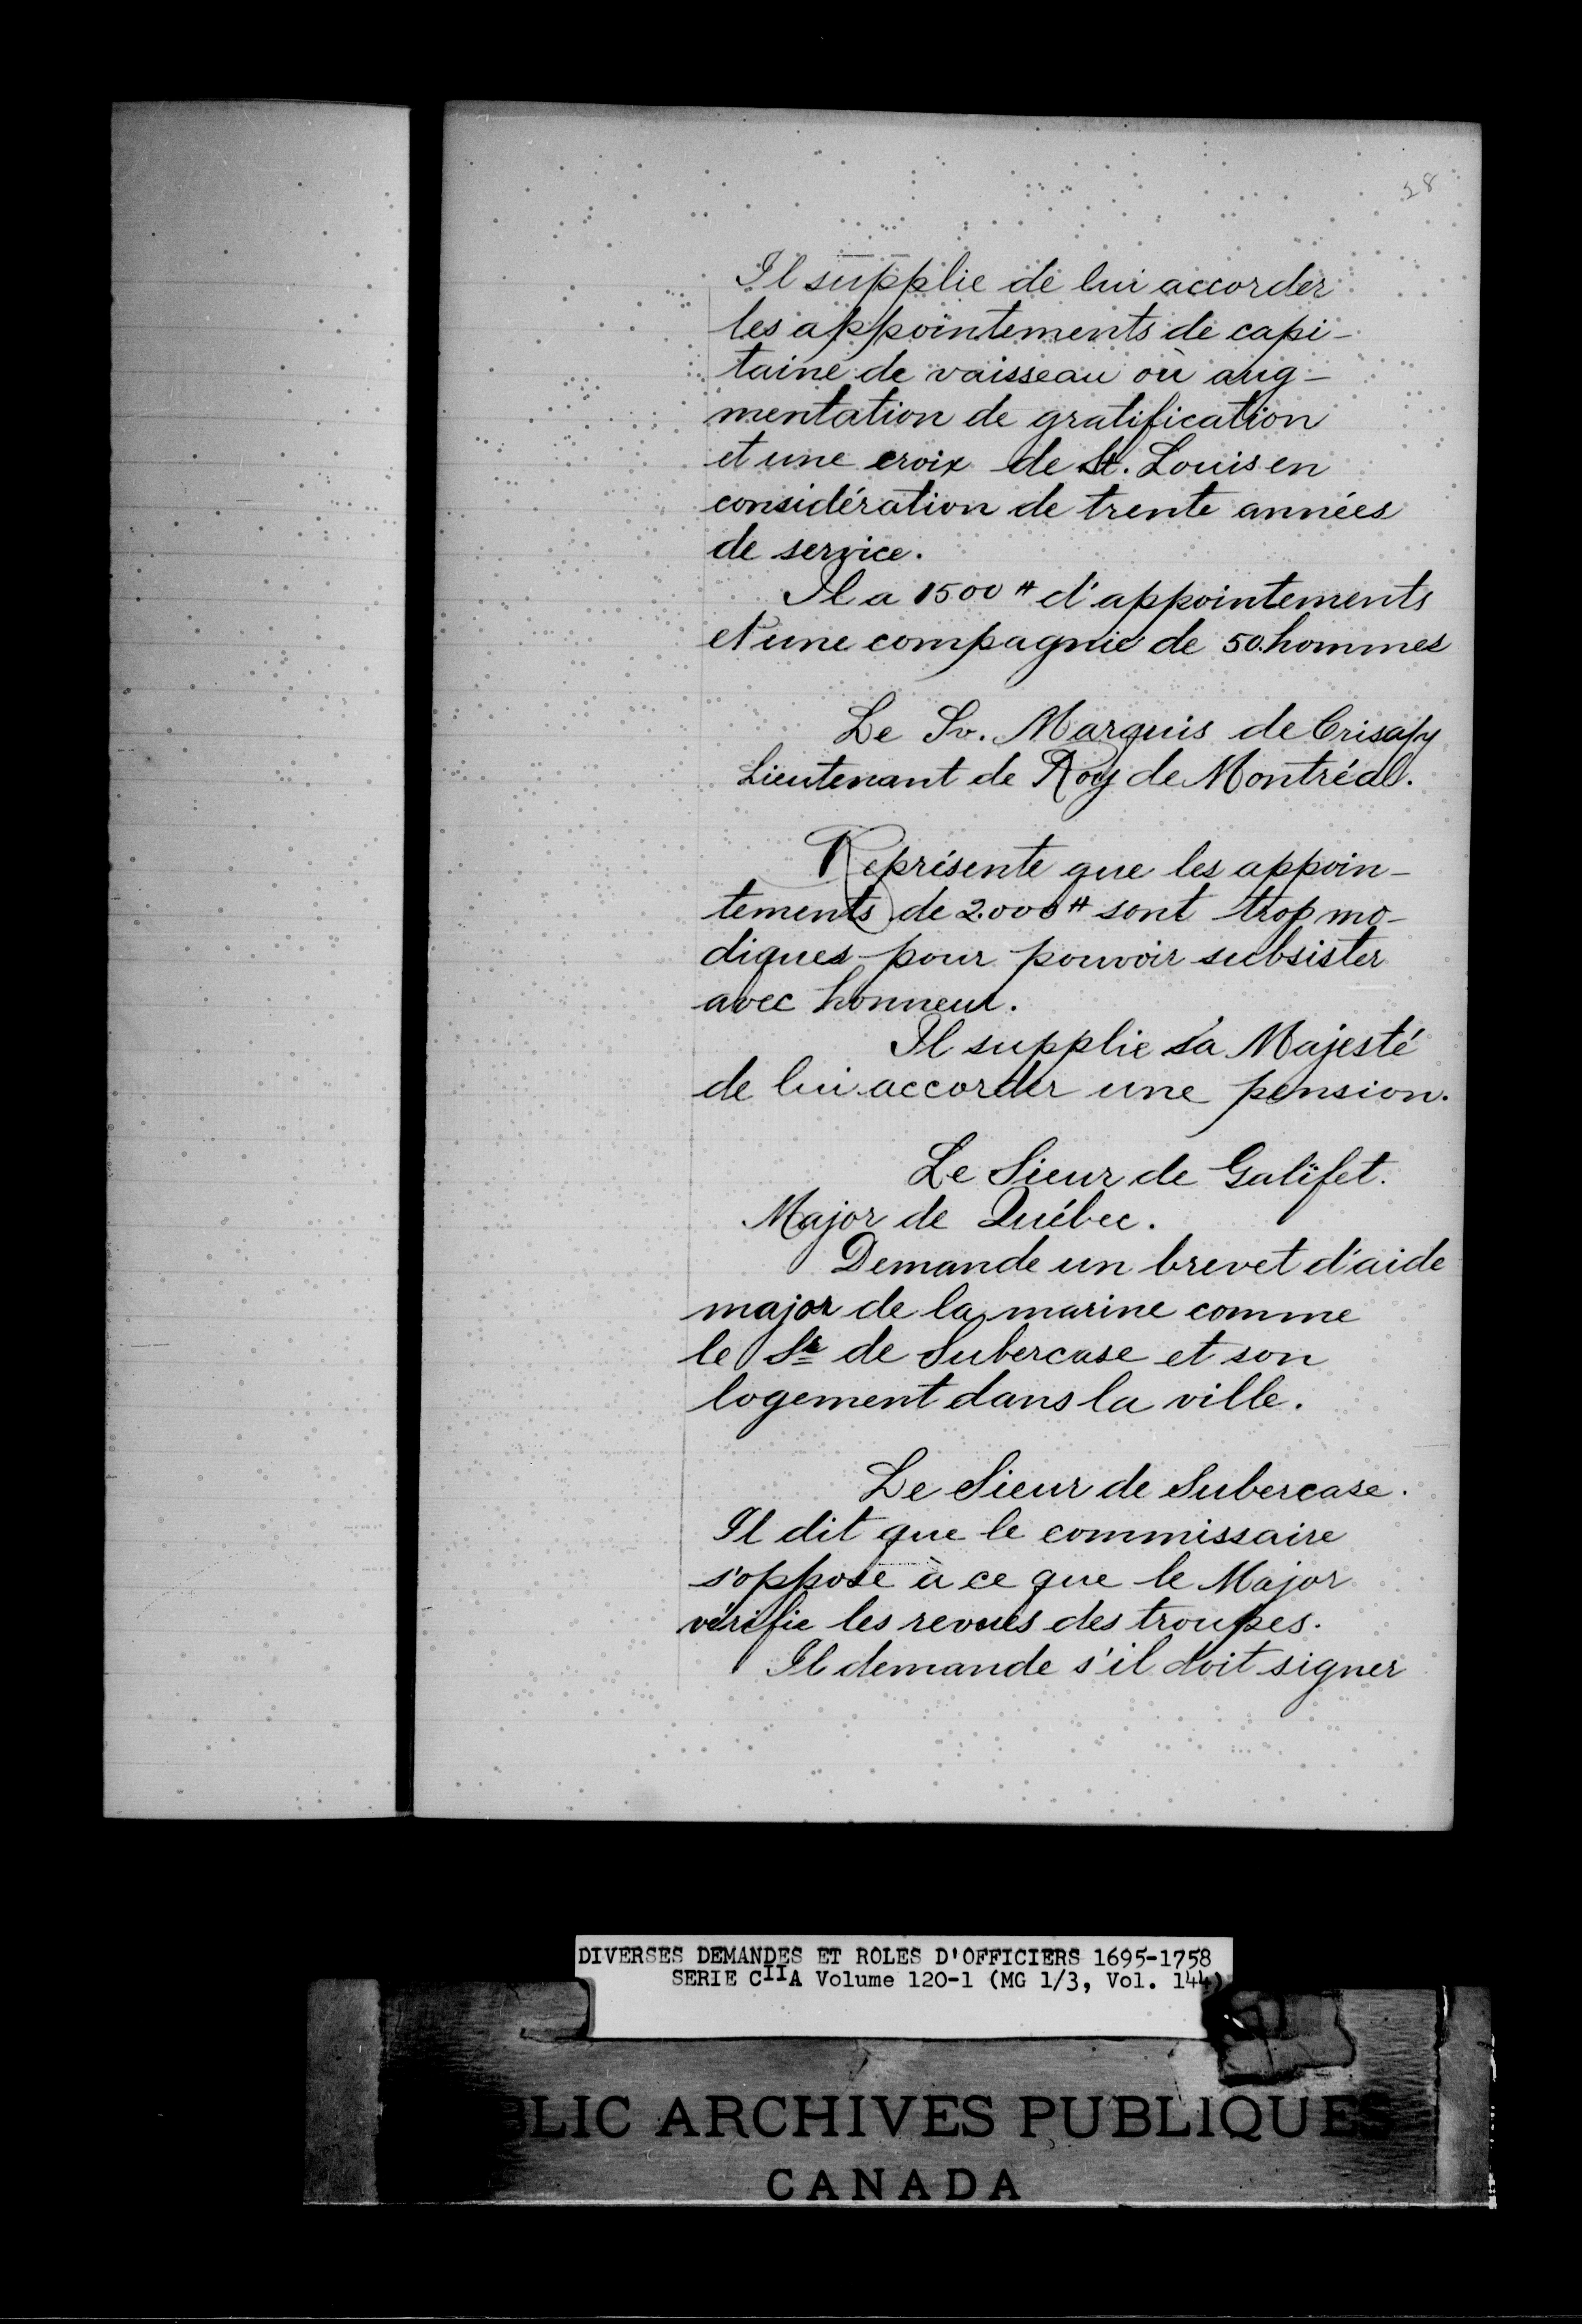 28
Il supplie de lui accorder
les appointements de capi-
taine de vaisseau où aug-
mentation de gratification
et une croix de St. Louis en
considération de trente années
de service.
Il a 1500 # d'appointements
et une compagnie de 50 hommes
Le Sr. Marquis de Crisafy
Lieutenant de Roy de Montréal.
Représente que les appoin-
tements de 2.000 # sont trop mo-
diques pour pouvoir subsister
avec honneur.
Il supplie sa Majesté
de lui accorder une pension.
Le Sieur de Galifet.
Major de Québec.
Demande un brevet d'aide
major de la marine comme
le Sr de Subercase et son
logement dans la ville.
Le Sieur de Subercase.
Il dit que le commissaire
s'oppose à ce que le Major
vérifie les revues des troupes.
Il demande s'il doit signer
DIVERSES DEMANDES ET ROLES D'OFFICIERS 1695-1758
SERIE CIIA Volume 120-1 (MG 1/3, Vol. 144)
BLIC ARCHIVES PUBLIQUES
CANADA